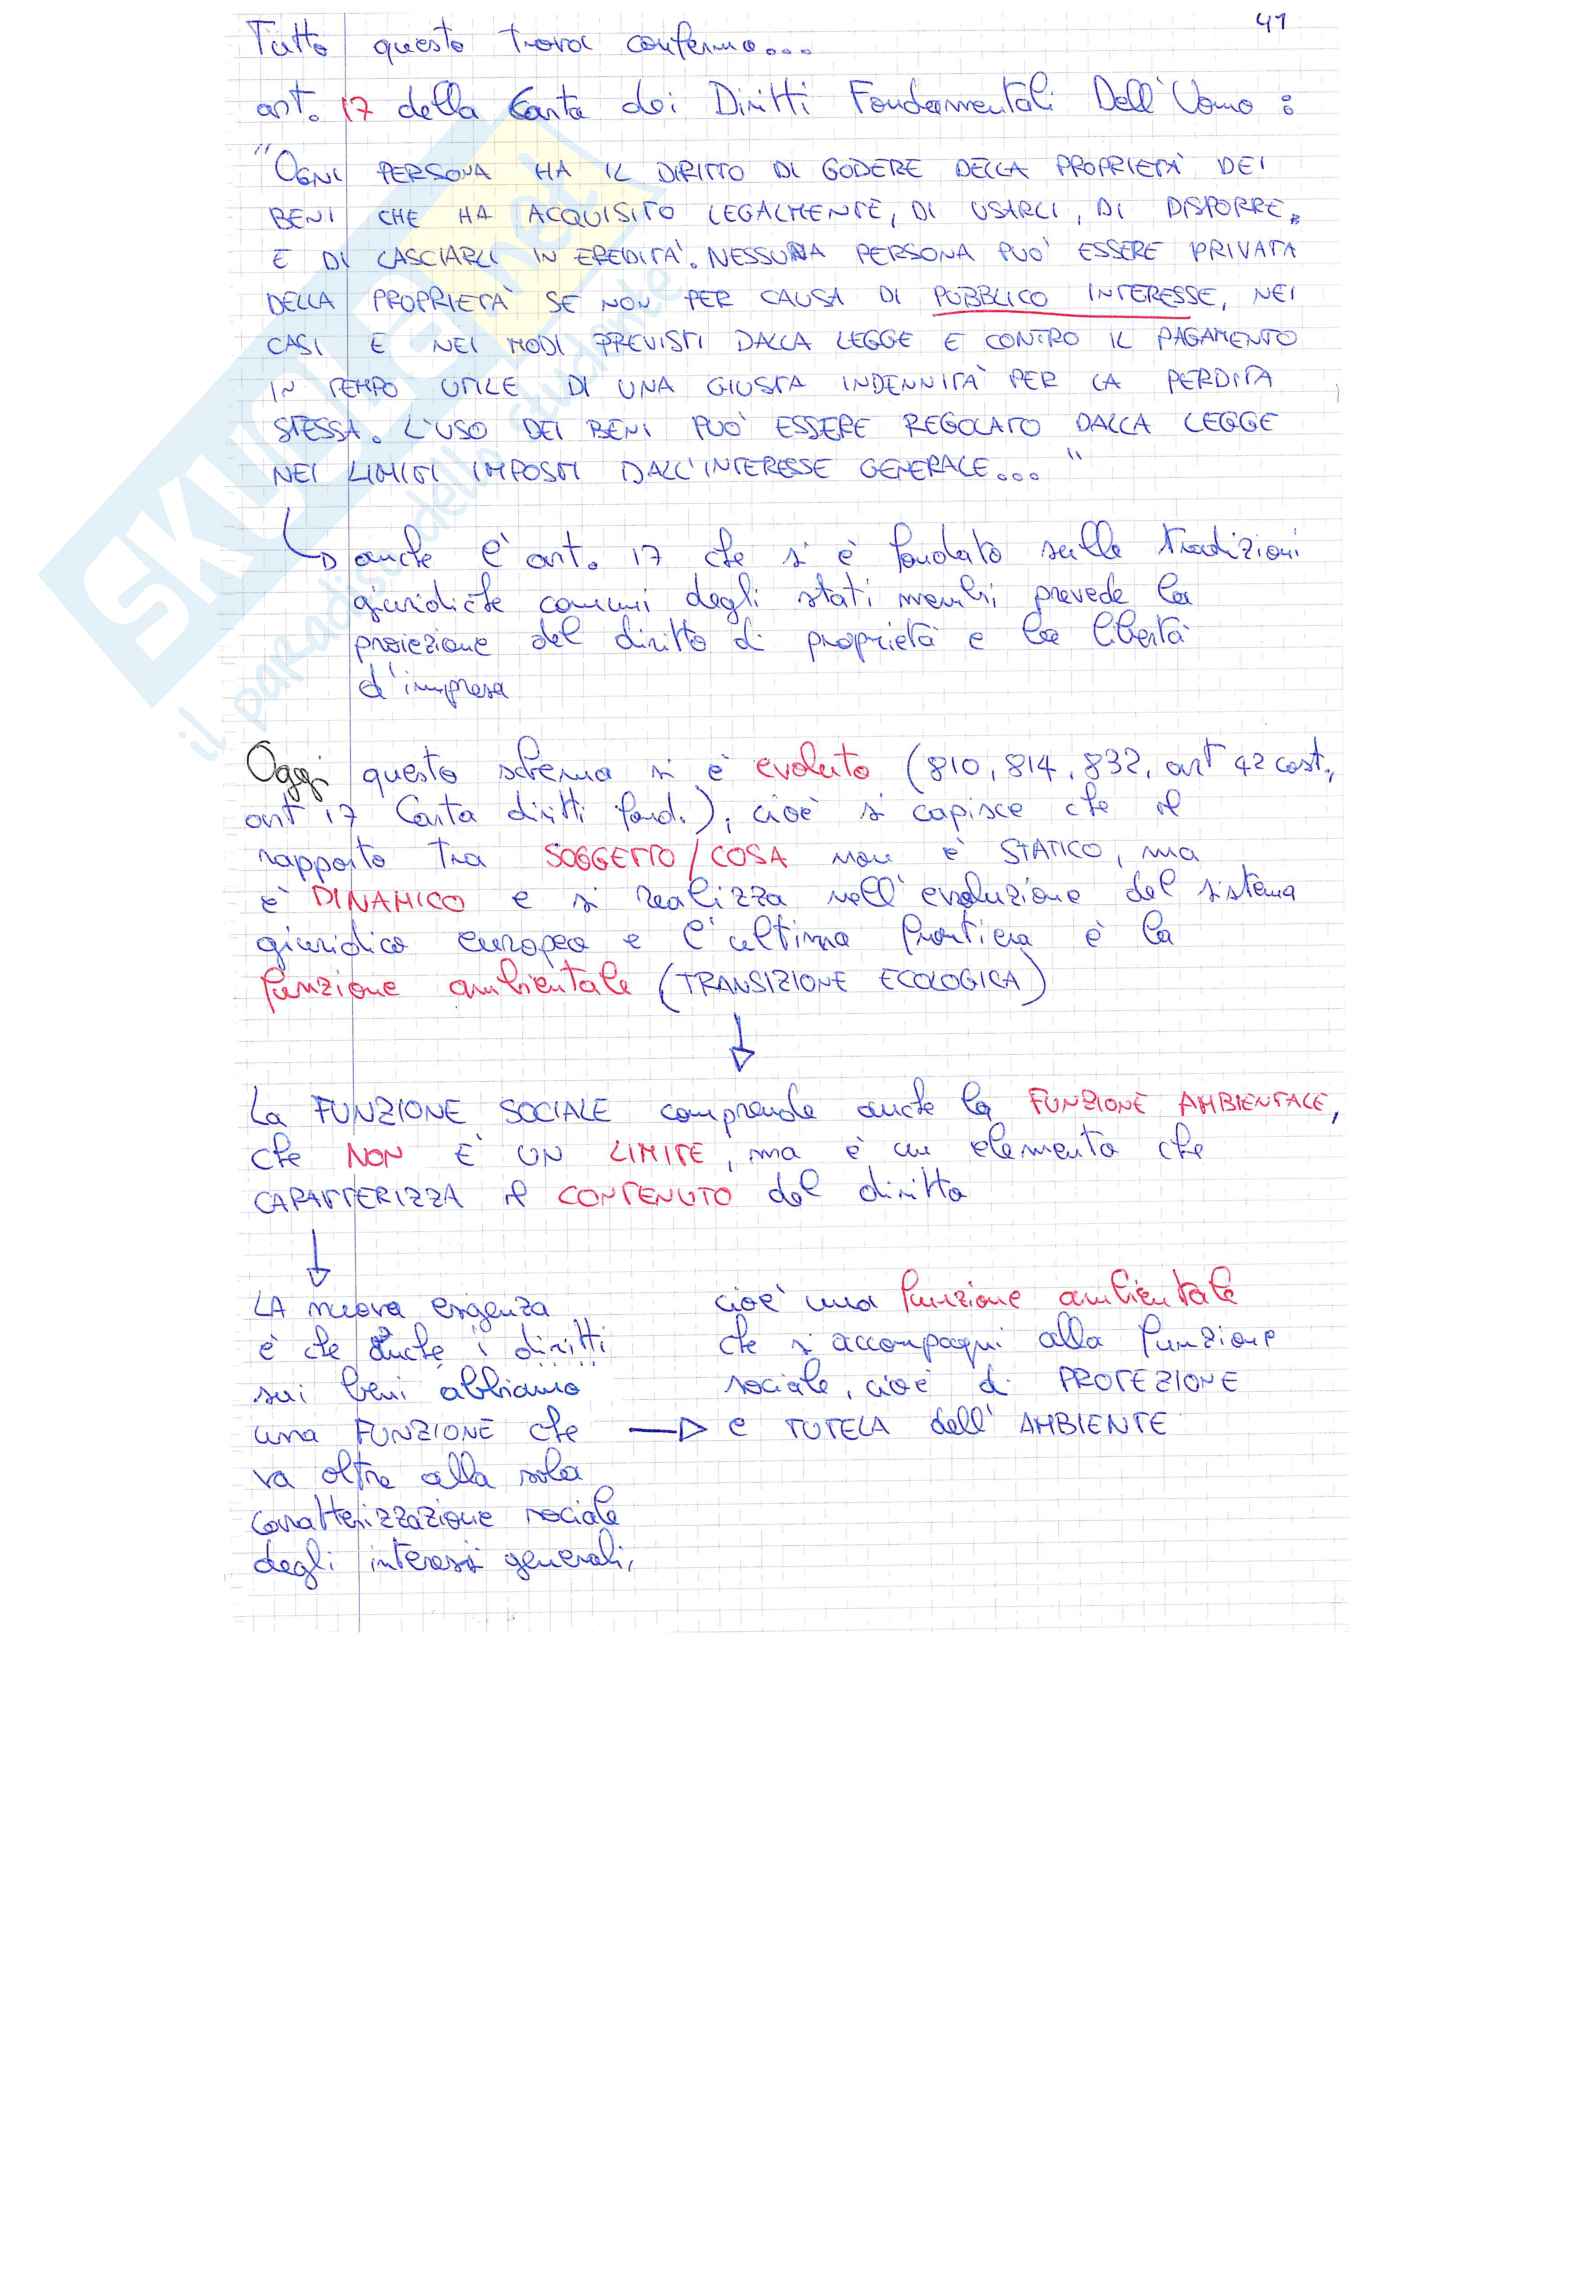 41
Tutto questo trova conferma...
art. 17 della Carta dei Diritti Fondamentali Dell'Uomo :
"OGNI PERSONA HA IL DIRITTO DI GODERE DELLA PROPRIETÀ DEI
BENI CHE HA ACQUISITO LEGALMENTE, DI USARLI, DI DISPORRE
E DI LASCIARLI IN EREDITA'. NESSUNA PERSONA PUO' ESSERE PRIVATA
DELLA PROPRIETA' SE NON PER CAUSA DI PUBBLICO INTERESSE, NEI
CASI E NEI MODI PREVISTI DALLA LEGGE E CONTRO IL PAGAMENTO
IN TEMPO UTILE DI UNA GIUSTA INDENNITA' PER LA PERDITA
STESSA. L'USO DEI BENI PUO' ESSERE REGOLATO DALLA LEGGE
NEI LIMITI IMPOSTI DALL'INTERESSE GENERALE..."
anche l'art. 17 che si è fondato sulle tradizioni
giuridiche comuni degli stati membri prevede la
proiezione del diritto di proprietà e la libertà
d'impresa
Oggi questo schema si è evoluto (810, 814, 832, art 42 cost,
art 17 Carta diritti fond.), cioè si capisce che il
rapporto tra SOGGETTO/COSA non è STATICO, ma
è DINAMICO e si realizza nell'evoluzione del sistema
giuridico europeo e l'ultima frontiera è la
funzione ambientale (TRANSIZIONE ECOLOGICA)
La FUNZIONE SOCIALE comprende anche la FUNZIONE AMBIENTALE,
che NON È UN LIMITE, ma è un elemento che
CARATTERIZZA il CONTENUTO del diritto
LA nuova esigenza
è che anche i diritti
sui beni abbiano
una FUNZIONE che
va oltre alla sola
caratterizzazione sociale
degli interessi generali,
cioè una funzione ambientale
che si accompagni alla funzione
sociale, cioè di PROTEZIONE
e TUTELA dell'AMBIENTE
SKUOLA.net
il paradiso dello studente